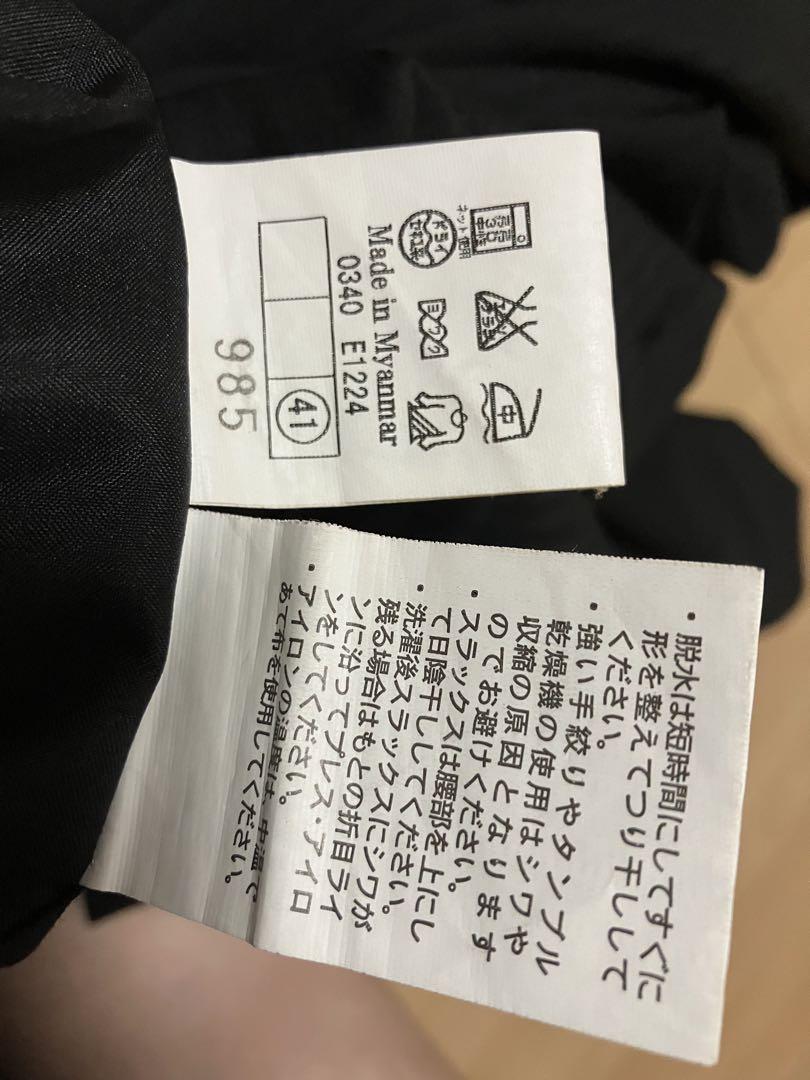 中性
中
ネット使用
ドライ
セキユ系
ヨワク
Made in Myanmar
0340 E1224
41
985
・脱水は短時間にしてすぐに
形を整えてつり干しして
ください。
・強い手絞りやタンブル
乾燥機の使用はシワや
収縮の原因となります
のでお避けください。
・スラックスは腰部を上にし
て日陰干ししてください。
・洗濯後スラックスにシワが
残る場合はもとの折目ライ
ンに沿ってプレス・アイロ
ンをしてください。
・アイロンの温度は、中温で
あて布を使用してください。